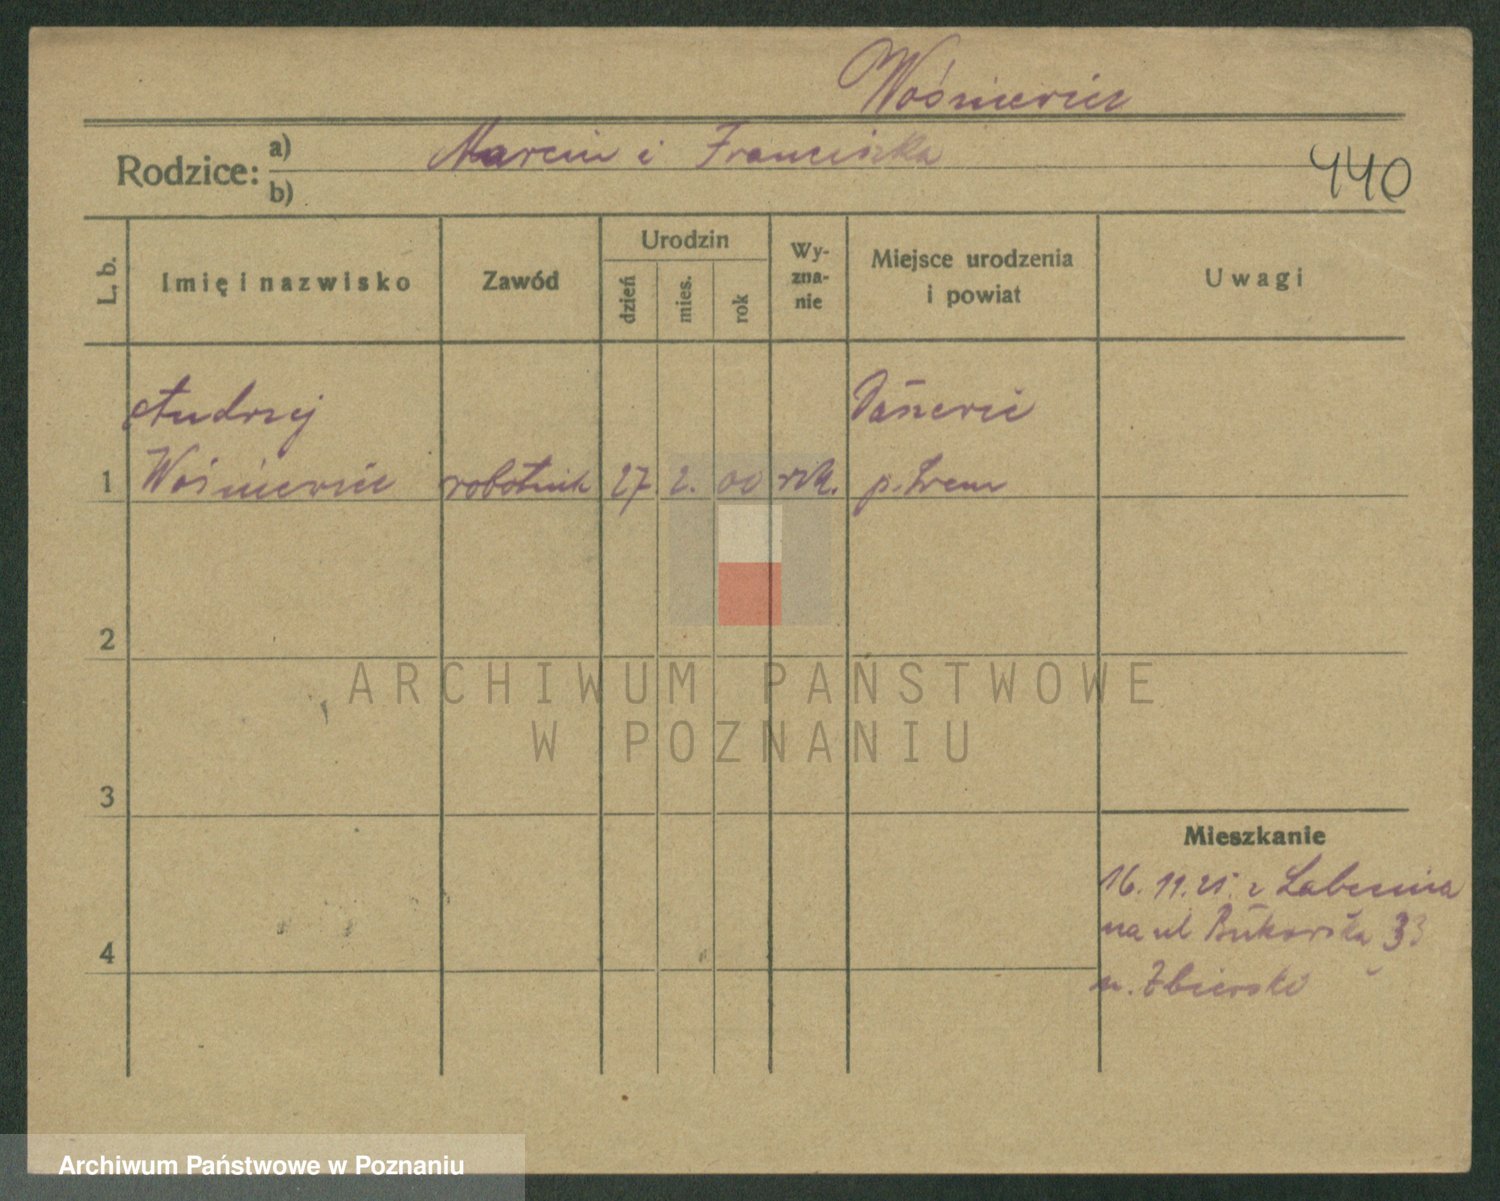 Wośniewicz
Rodzice: a) Marcin i Franciszka
b)
440
L. b. Imię i nazwisko Zawód Urodzin dzień mies. rok Wy-zna-nie Miejsce urodzenia i powiat Uwagi
Andrzej
1 Wośniewicz robotnik 27. 2. 00 rzk. p. Śrem
2
3
4
Mieszkanie
16. 11. 25. z
na ul Bukowska 33
u. Zbierski
ARCHIWUM PAŃSTWOWE
W POZNANIU
Archiwum Państwowe w Poznaniu